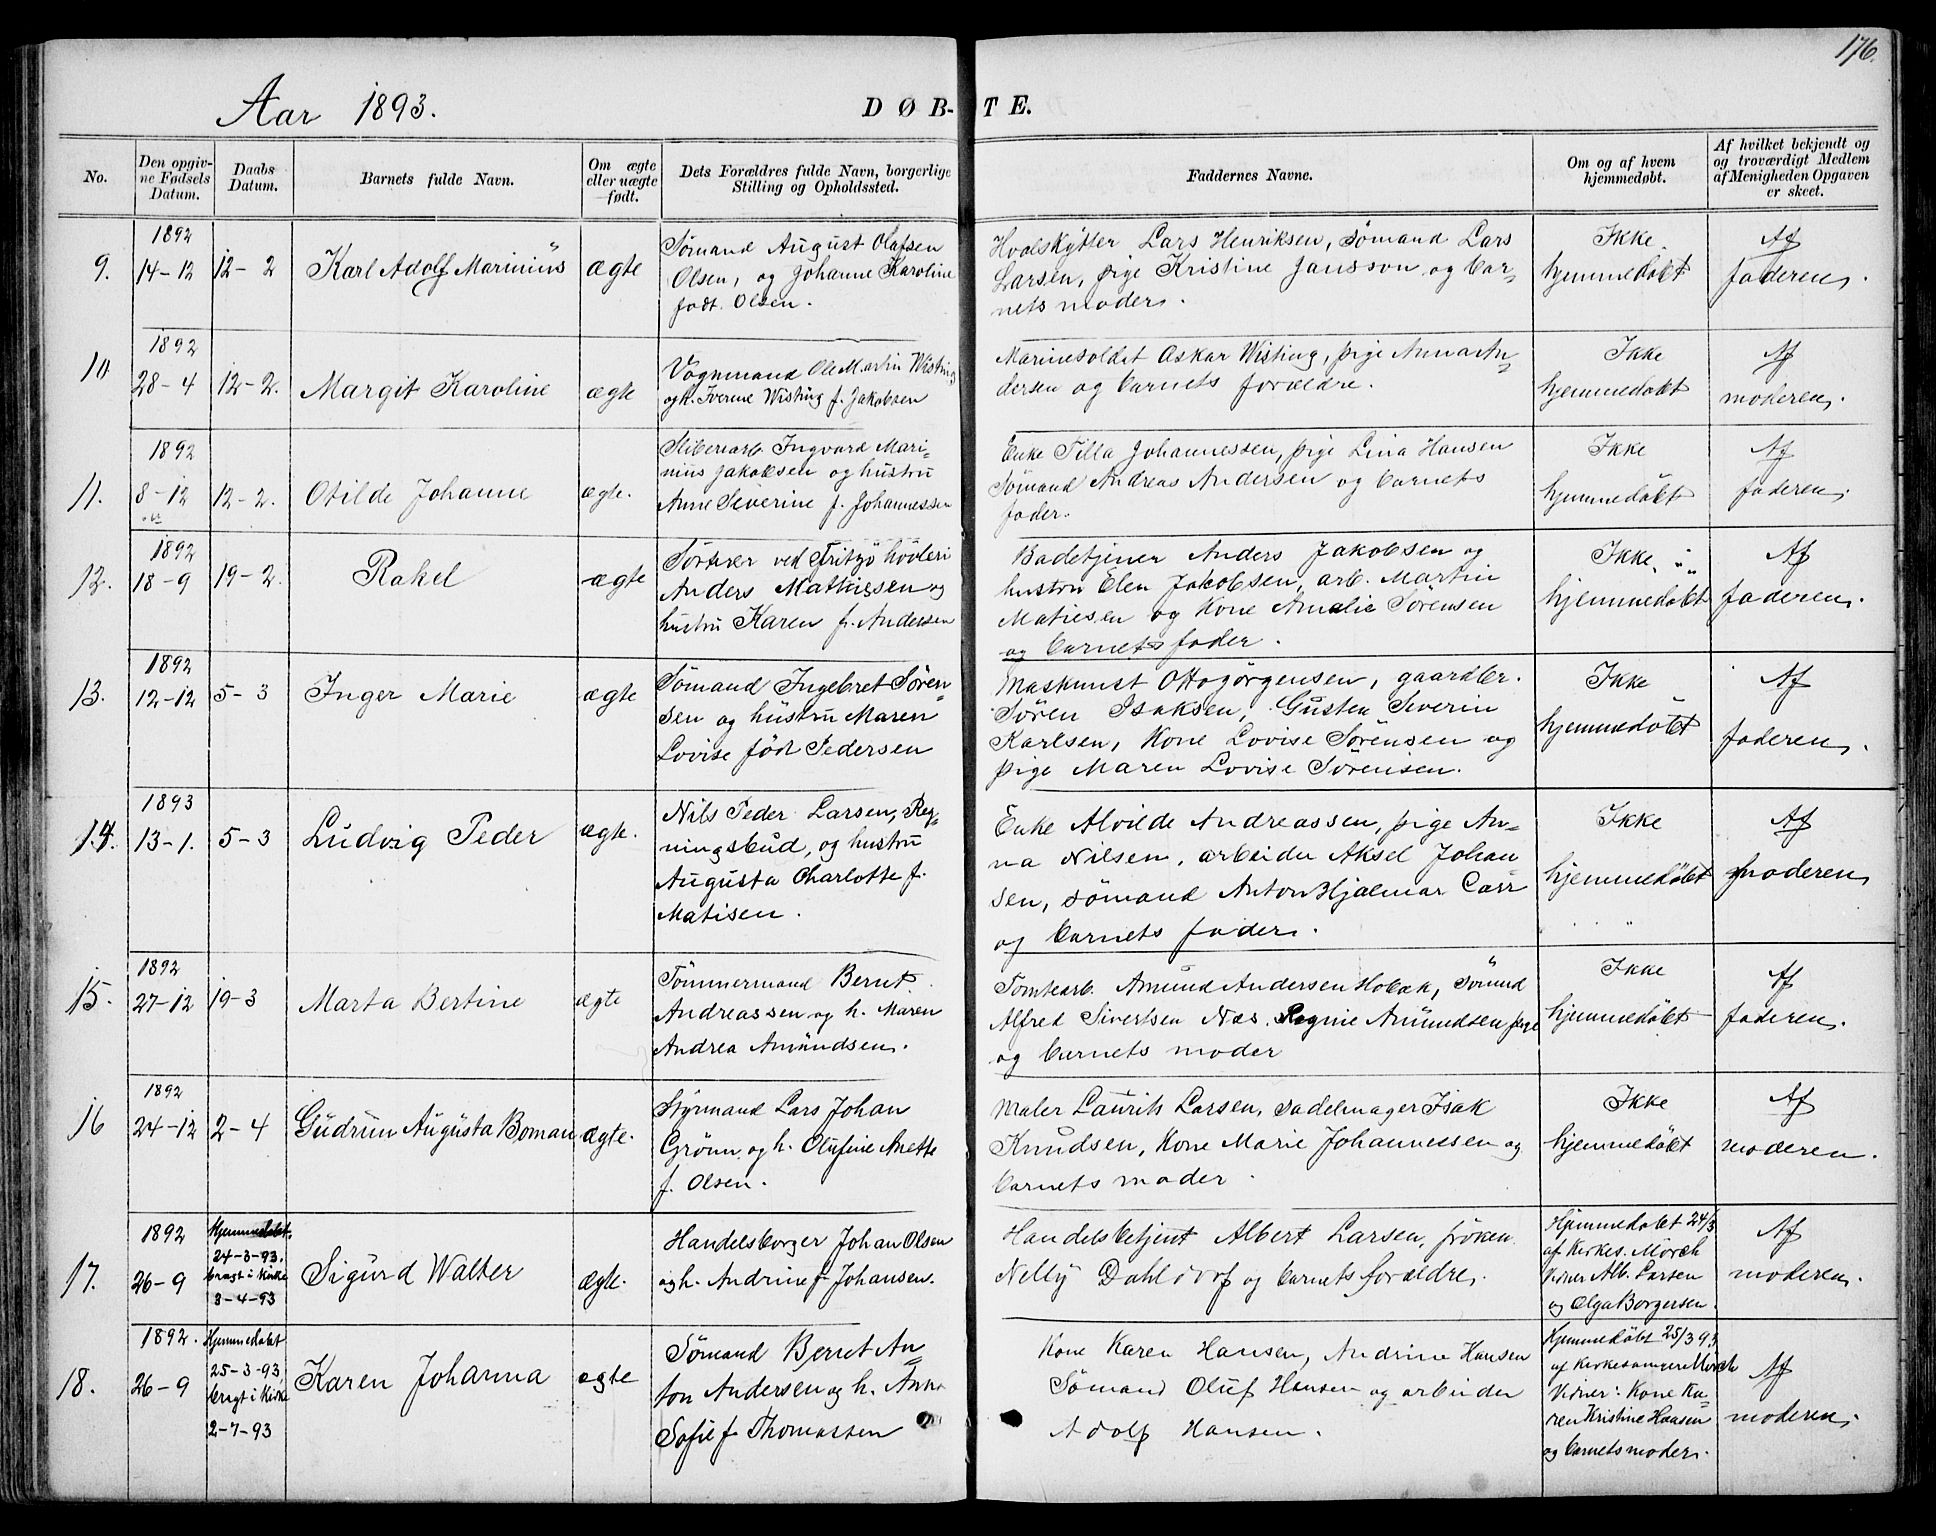 176.
Aar 1893.
DØB-TE.
No.
Den opgiv-
ne Fødsels
Datum.
Daabs
Datum.
Barnets fulde Navn.
Om ægte
eller uægte
født.
Dets Forældres fulde Navn, borgerlige
Stilling og Opholdssted.
Faddernes Navne.
Om og af hvem
hjemmedøbt.
Af hvilket bekjendt og
og troværdigt Medlem
af Menigheden Opgaven
er skeet.
9.
1892
14-12
12-2
Karl Adolf Marinius
ægte
Sømand August Olafsen
Olsen, og Johanne Karoline
født. Olsen.
Hvalskytter Lars Henriksen, sømand Lars
Larsen, pige Kristine Jansson og bar-
nets moder.
Ikke
hjemmedøbt
Af
faderen.
10
1892
28-4
12-2.
Margit Karoline
ægte
Vognmand Ole Martin Wisting
og h. Iverine Wisting f. Jakobsen
Marinesoldat Oskar Wisting, pige Anna An-
dersen og barnets forældre.
Ikke
hjemmedøbt
Af
moderen.
11.
1892
8-12
12-2.
Otilde Johanne
ægte.
Sliberiarb. Ingvard Mari-
nius Jakobsen og hustru
Anne Severine f. Johannessen
Enke Tilla Johannessen, pige Lina Hansen
Sømand Andreas Andersen og barnets
fader.
Ikke
hjemmedøbt
Af
faderen.
12.
1892
18-9
19-2.
Rakel
ægte
ved Fritzø høvleri
Anders Mathissen og
hustru Karen f. Andersen
Badetjener Anders Jakobsen og
hustru Elen Jakobsen, arb. Martin
Matiesen og Kone Amalie Sørensen
og barnets fader.
Ikke
hjemmedøbt
Af
faderen.
13.
1892
12-12
5-3
Inger Marie
ægte
Sømand Ingebret Søren-
sen og hustru Maren
Lovise född Pedersen
Maskinist Otto Jörgensen, gaardbr.
Sören Isaksen, Gusten Severin
Karlsen, Kone Lovise Sörensen og
pige Maren Lovise Sörensen.
Ikke
hjemmedøbt
Af
faderen.
14.
1893
13-1.
5-3
Ludvig Peder
ægte.
Nils Peder Larsen, Reg-
ningsbud, og hustru
Augusta Charlotte f.
Matisen.
Enke Alvilde Andreassen, pige An-
na Nilsen, arbeider Aksel Johan
sen, sømand Anton Hjalmar Carr
og barnets fader.
Ikke
hjemmedøbt
Af
moderen
15.
1892
27-12
19-3
Marta Bertine
ægte
Tömmermand Bernt
Andreassen og h. Maren
Andrea Amundsen.
Tomtearb. Amund Andersen Hobæk, Sömand
Alfred Sivertsen Næs. Regine Amundsen pige
og barnets moder
Ikke
hjemmedøbt
Af
faderen.
16
1892
24-12
2-4
Gudrun Augusta Boman
ægte.
Styrmand Lars Johan
Grönn, og h. Olufine Anette
f. Olsen.
Maler Laurits Larsen, sadelmager Isak
Knudsen, Kone Marie Johannessen og
barnets moder.
Ikke
hjemmedøbt
Af
moderen.
17.
1892
26-9
Hjemmedøbt
24-3-93.
bragt i Kirke
3-4-93
Sigurd Walter
ægte.
Handelsborger Johan Olsen
og h. Andrine f. Johansen.
Handelsbetjent Albert Larsen, fröken
Nelly Dahldorf og barnets forældre.
Hjemmedøbt 24/3
af Kirkes. Mörch
Vidner Alb. Larsen
og Olga Borgersen.
Af
moderen.
18.
1892.
26-9
Hjemmedøbt
25-3-93,
bragt i Kirke
2-7-93
Karen Johanna
ægte
Sømand Bernt An
ton Andersen og h. Anna
Sofie f. Thomassen
Kone Karen Hansen, Andrine Hansen
Sømand Oluf Hansen og arbeider
Adolf Hansen.
Hjemmedøbt 25/3 93,
af Kirkesanger Mörch
Vidner: Kone Ka-
ren Kristine Hansen
og barnets moder.
Af
moderen.